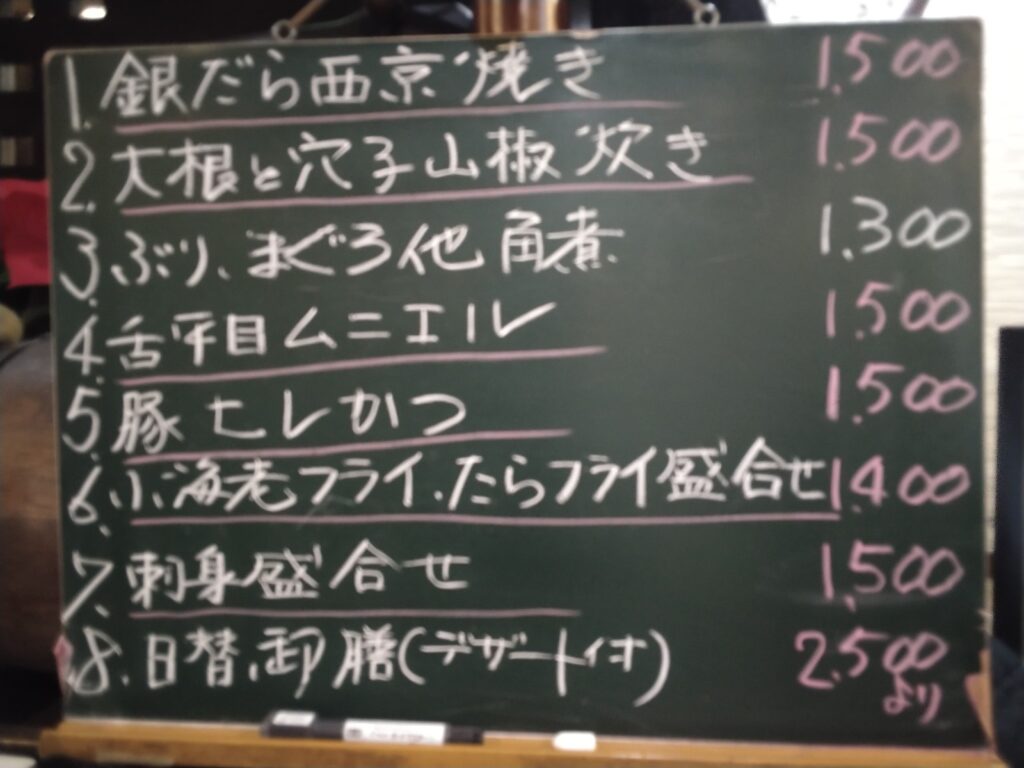 1. 銀だら西京焼き 1.500
2. 大根と穴子山椒炊き 1.500
3. ぶり、まぐろ他角煮 1.300
4. 舌平目ムニエル 1.500
5. 豚ヒレかつ 1.500
6. 小海老フライ、たらフライ盛合せ 1.400
7. 刺身盛合せ 1.500
8. 日替御膳(デザート付) 2.500
より